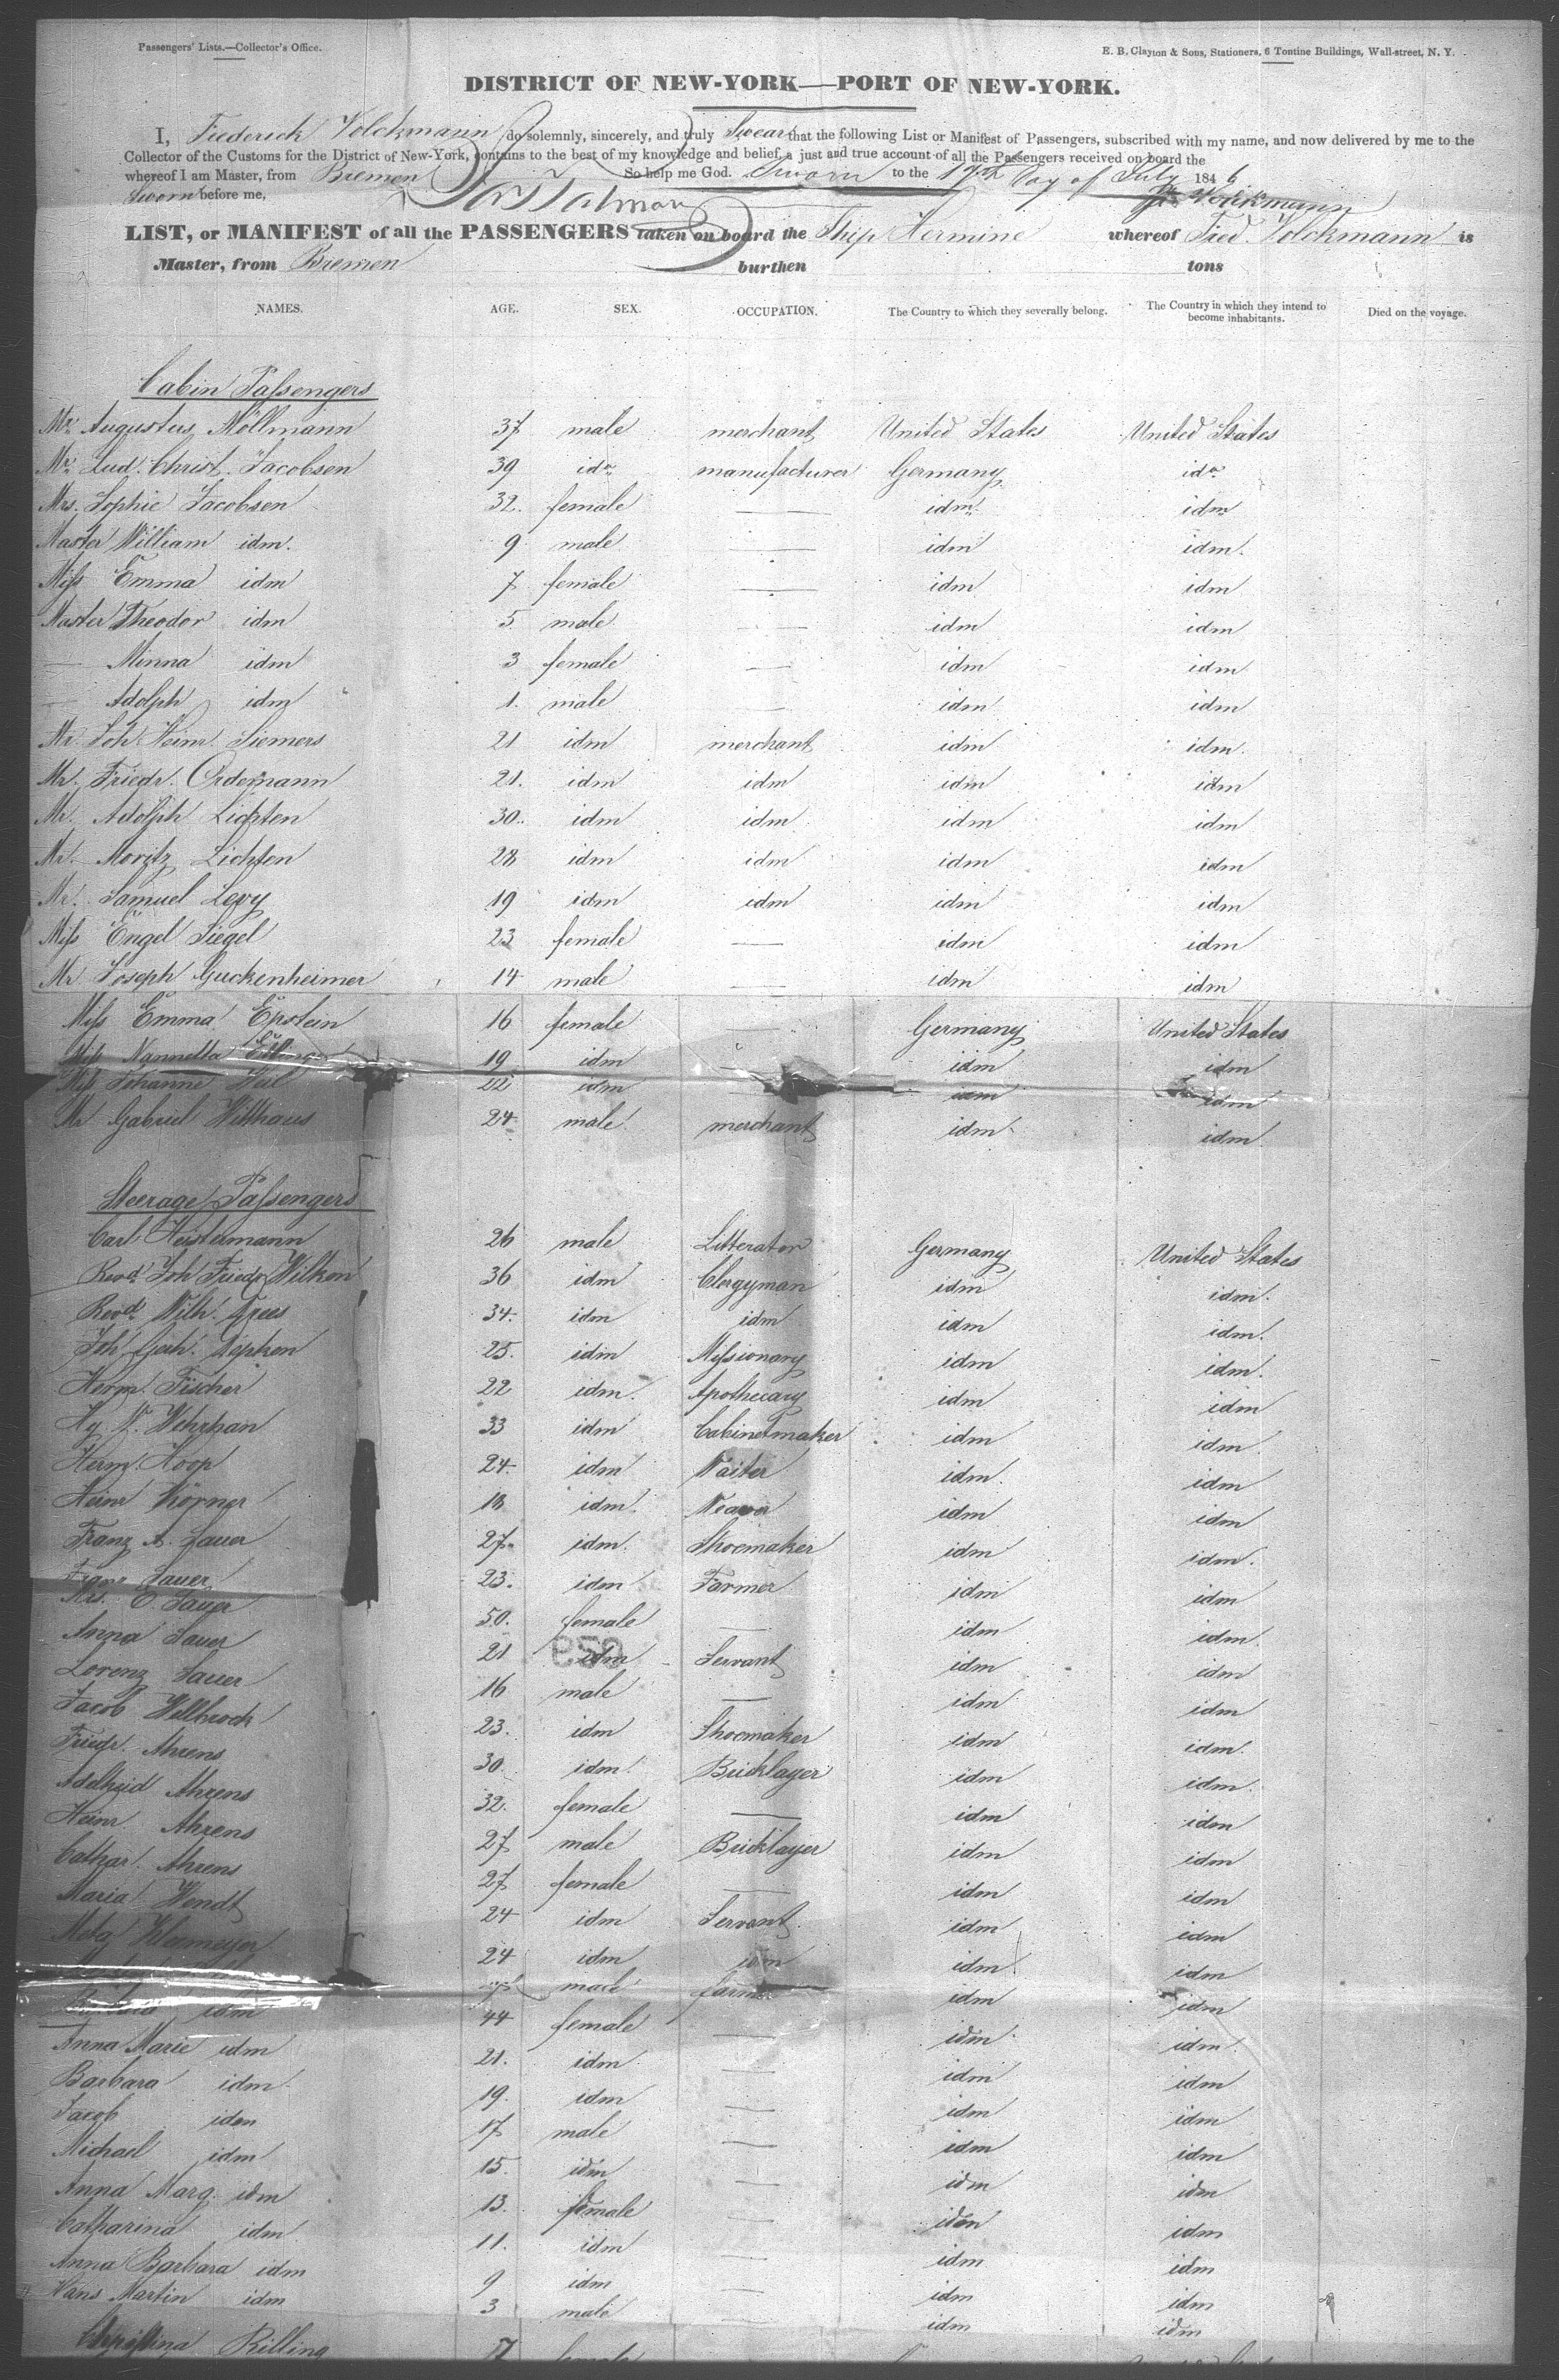 Passengers' Lists.—Collector's Office.
E. B. Clayton & Sons, Stationers, 6 Tontine Buildings, Wall-street, N. Y.
DISTRICT OF NEW-YORK—PORT OF NEW-YORK.
I, Frederick Volckmann do solemnly, sincerely, and truly Swear that the following List or Manifest of Passengers, subscribed with my name, and now delivered by me to the
Collector of the Customs for the District of New-York, contains to the best of my knowledge and belief, a just and true account of all the Passengers received on board the
whereof I am Master, from Bremen So help me God. Sworn to the 17th Day of July 1846
Sworn before me, Fr. Volckmann
LIST, or MANIFEST of all the PASSENGERS taken on board the Ship Hermine whereof Fred. Volckmann is
Master, from Bremen burthen tons
NAMES. AGE. SEX. OCCUPATION. The Country to which they severally belong. The Country in which they intend to become inhabitants. Died on the voyage.
Cabin Passengers
Mr. Augustus Möllmann 37 male merchant United States United States
Mr. Lud. Christ. Jacobsen 39 idm manufacturer Germany idm
Mrs. Sophie Jacobsen 32. female — idm idm
Master William idm. 9 male — idm idm.
Miss Emma idm 7 female — idm idm
Master Theodor idm 5 male — idm idm
— Minna idm 3 female — idm idm
— Adolph idm 1. male — idm idm
Mr. Joh. Heinr. Siemers 21 idm merchant idm idm.
Mr. Friedr. Ordemann 21. idm idm idm idm
Mr. Adolph Lichten 30. idm idm idm idm
Mr. Moritz Lichten 28 idm idm idm idm
Mr. Samuel Levy 19 idm idm idm idm
Miss Engel Siegel 23 female — idm idm
Mr Joseph Guckenheimer 14 male — idm idm
Miss Emma Epstein 16 female — Germany United States
Miss Nannetta 19 idm idm idm
Miss Johanne Weil 22 idm idm idm
Mr Gabriel Witthaus 24 male merchant idm idm
Steerage Passengers
Carl Heistermann 26 male Litterator Germany United States
Revd. Joh Friedr Wilken 36 idm Clergyman idm idm.
Revd. Wilh. Drees 34. idm idm idm idm.
Joh Gerh. 25. idm Missionary idm idm.
Herm. Fischer 22 idm. Apothecary idm idm
Hy W. Wehrhan 33 idm Cabinetmaker idm idm
Herm. Hoop 24. idm Waiter idm. idm
Heinr Körner 18 idm. Weaver idm idm
Franz A. Sauer 27. idm. Shoemaker idm idm.
Franz Sauer 23. idm Farmer idm idm
Mrs. C. Sauer 50. female — idm idm
Anna Sauer 21 idm Servant idm idm
Lorenz Sauer 16 male — idm idm
Jacob Wellbrock 23. idm Shoemaker idm idm.
Friedr. Ahrens 30 idm Bricklayer idm idm.
Adelheid Ahrens 32. female — idm idm
Heinr Ahrens 27 male Bricklayer idm idm
Cathar. Ahrens 27 female — idm idm
Maria Wendt 24 idm Servant idm idm
Meta Klenmeyer 24 idm idm idm idm
male idm idm
idm 44 female — idm idm
Anna Marie idm 21. idm — idm idm
Barbara idm 19. idm — idm idm
Jacob idm 17 male — idm idm
Michael idm 15. idm — idm idm
Anna Marg. idm 13. female — idm idm
Catharina idm 11. idm — idm idm
Anna Barbara idm 9 idm — idm idm
Hans Martin idm 3 male — idm idm
Christina Rilling 7